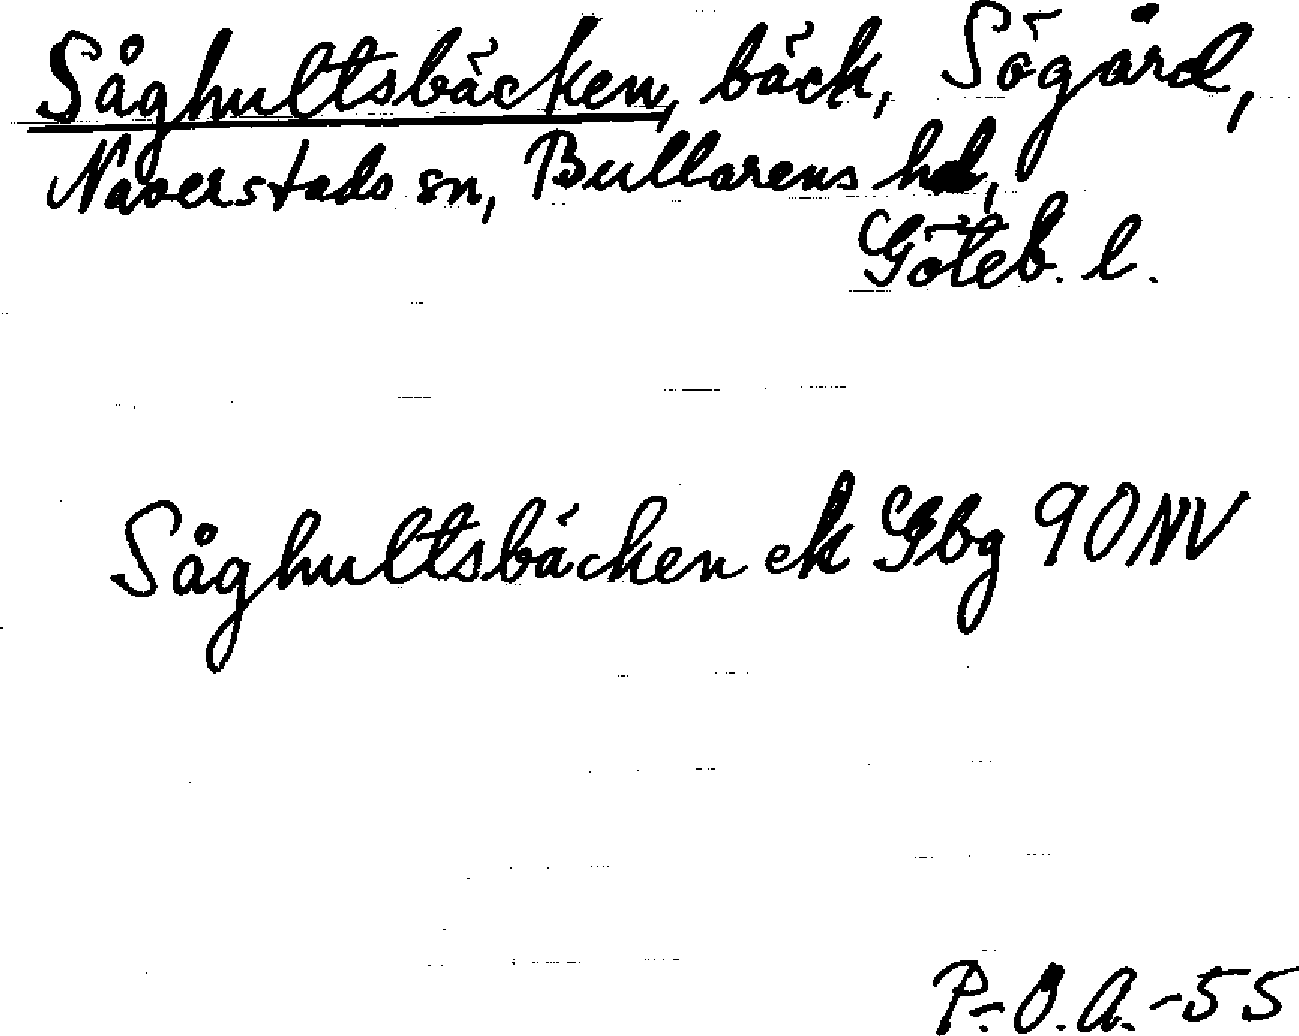 Såghultsbäcken, bäck, Sögård,
Naverstads sn, Bullarens hd,
Göteb. l.
Såghultsbäcken ek Gbg 90 NV
P.-O.A.-55